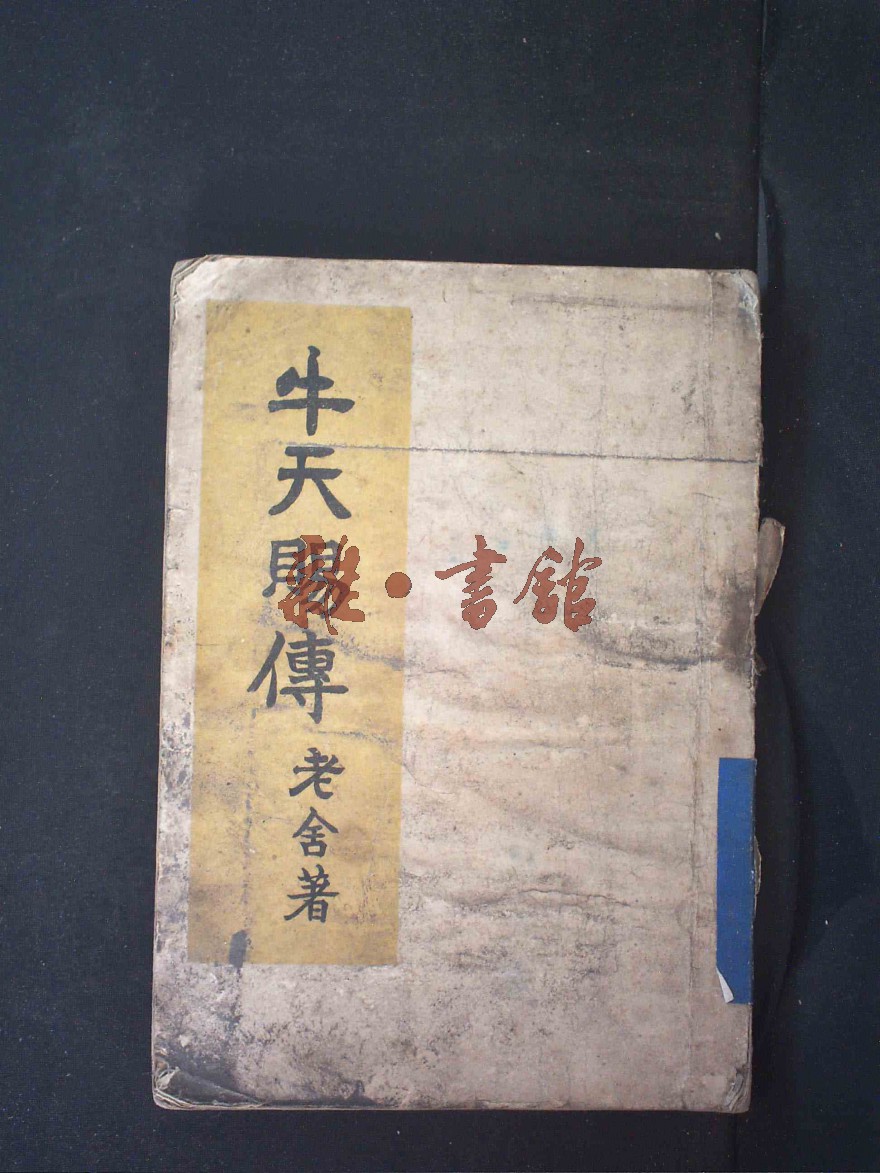 牛天賜傳
老舍著
雅·書館